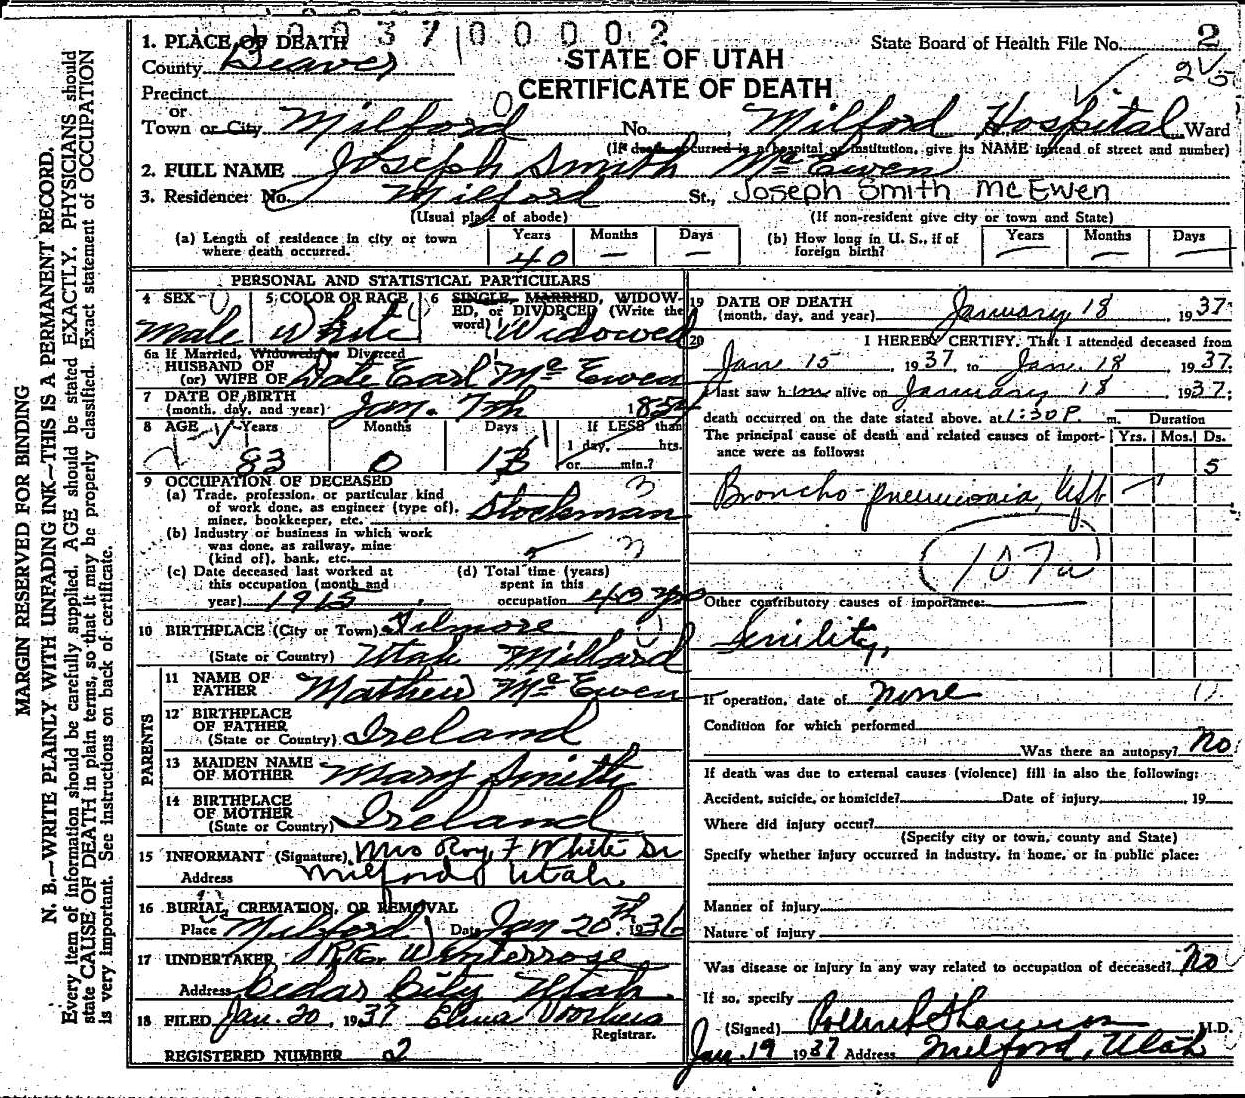 1937 00002
1. PLACE OF DEATH
State Board of Health File No. 2
County Beaver
STATE OF UTAH
Precinct
CERTIFICATE OF DEATH
or
Town or City Milford No. Milford Hospital Ward
(If death occurred in a hospital or institution, give its NAME instead of street and number)
2. FULL NAME Joseph Smith McEwen
3. Residence: No. Milford St., Joseph Smith McEwen
(Usual place of abode) (If non-resident give city or town and State)
(a) Length of residence in city or town where death occurred. Years 40 Months — Days —
(b) How long in U. S., if of foreign birth? Years — Months — Days —
PERSONAL AND STATISTICAL PARTICULARS
4 SEX Male
5 COLOR OR RACE White
6 SINGLE, MARRIED, WIDOWED, or DIVORCED (Write the word) Widowed
6a If Married, Widowed, or Divorced
HUSBAND OF
(or) WIFE OF Date Earl McEwen
7 DATE OF BIRTH
(month, day, and year) Jan. 7th 185
8 AGE Years 83 Months 0 Days If LESS than 1 day, hrs. or min.?
9 OCCUPATION OF DECEASED
(a) Trade, profession, or particular kind
of work done, as engineer (type of),
miner, bookkeeper, etc. Stockman
(b) Industry or business in which work
was done, as railway, mine
(kind of), bank, etc.
(c) Date deceased last worked at
this occupation (month and
year) 1915
(d) Total time (years)
spent in this
occupation 40 yrs
10 BIRTHPLACE (City or Town) Filmore
(State or Country) Utah Millard
PARENTS
11 NAME OF FATHER Mathew McEwen
12 BIRTHPLACE OF FATHER
(State or Country) Ireland
13 MAIDEN NAME OF MOTHER Mary Smith
14 BIRTHPLACE OF MOTHER
(State or Country) Ireland
15 INFORMANT (Signature) Mrs Roy F White Sr
Address Milford Utah.
16 BURIAL, CREMATION, OR REMOVAL
Place Milford Date Jan 20th 1936
17 UNDERTAKER Winterrose
Address Cedar City Utah.
18 FILED Jan. 20, 1937 Elma Voorhees
Registrar.
REGISTERED NUMBER 2
19 DATE OF DEATH
(month, day, and year) January 18, 1937
20 I HEREBY CERTIFY, That I attended deceased from
Jan. 15, 1937, to Jan. 18 1937;
I last saw him alive on January 18 1937;
death occurred on the date stated above, at 1:30 P. m. Duration
The principal cause of death and related causes of importance were as follows: Yrs. Mos. Ds.
5
Broncho-pneumonia, left
107a
Other contributory causes of importance:
Senility,
If operation, date of none
Condition for which performed
Was there an autopsy? no
If death was due to external causes (violence) fill in also the following:
Accident, suicide, or homicide? Date of injury 19
Where did injury occur?
(Specify city or town, county and State)
Specify whether injury occurred in industry, in home, or in public place:
Manner of injury
Nature of injury
Was disease or injury in any way related to occupation of deceased? No
If so, specify
(Signed) M.D.
Jan. 19 1937 Address Milford, Utah
MARGIN RESERVED FOR BINDING
N. B.—WRITE PLAINLY WITH UNFADING INK—THIS IS A PERMANENT RECORD.
Every item of information should be carefully supplied. AGE should be stated EXACTLY. PHYSICIANS should
state CAUSE OF DEATH in plain terms, so that it may be properly classified. Exact statement of OCCUPATION
is very important. See instructions on back of certificate.